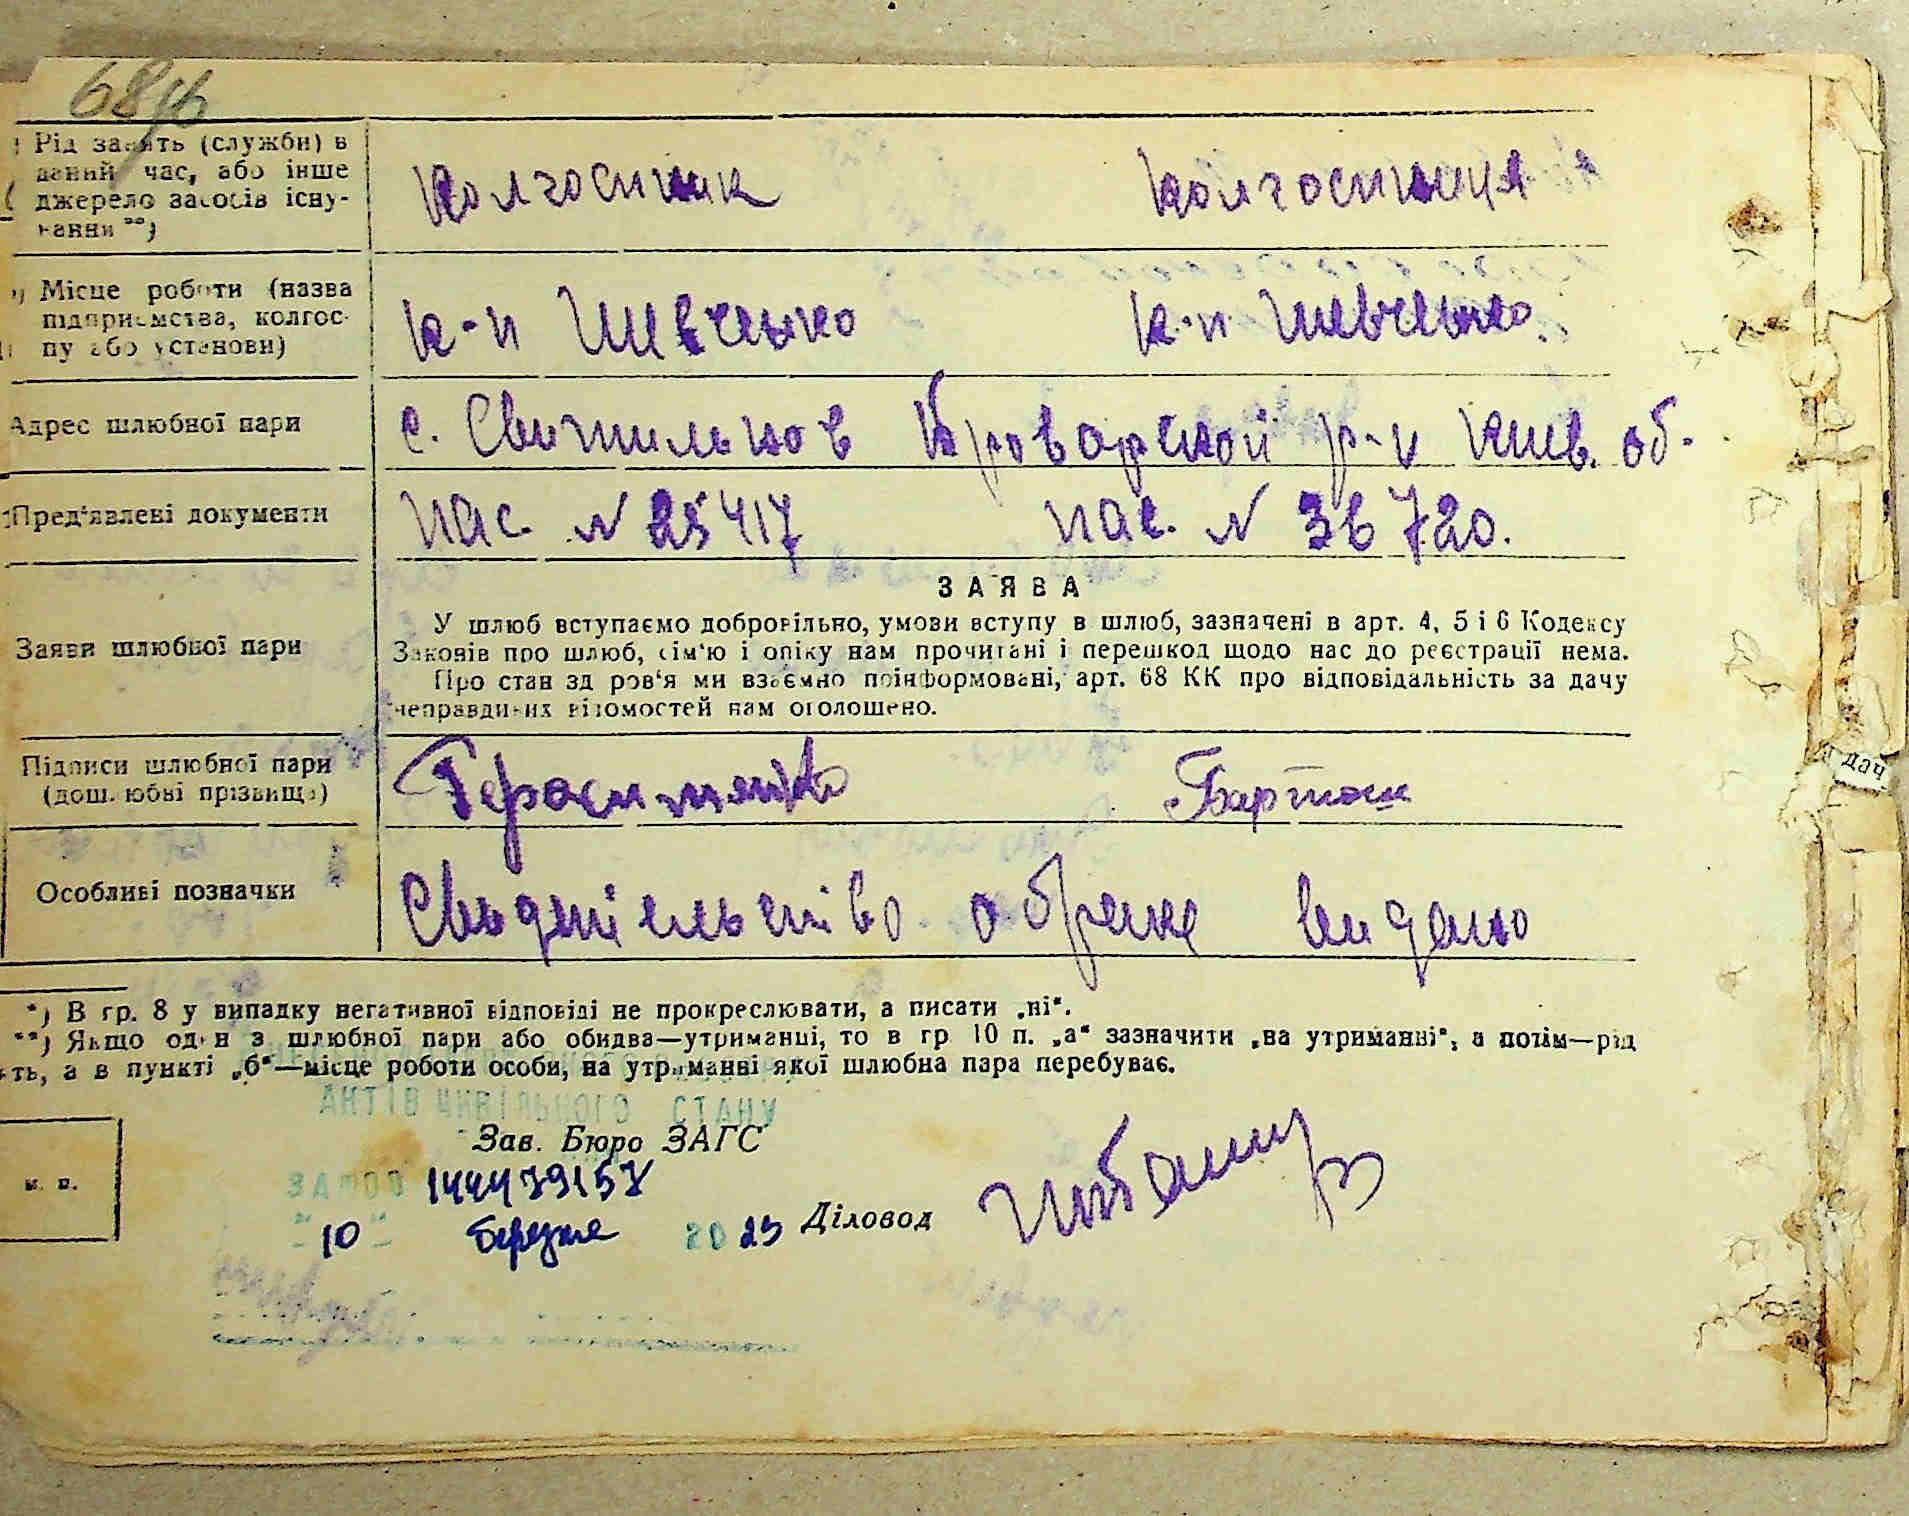 68
Рід занять (служби) в
даний час, або інше
джерело засобів існу-
вання **)
колгоспник колгоспниця
Місце роботи (назва
підприємства, колгос-
пу або установи)
к-п Шевченко к-п Шевченко
Адрес шлюбної пари
с. Свитильнов Броварской р-н Киив. об.
Пред'явлені документи
пас. N 25417 пас. N 36720.
ЗАЯВА
Заяви шлюбної пари
У шлюб вступаємо добровільно, умови вступу в шлюб, зазначені в арт. 4, 5 і 6 Кодексу
Законів про шлюб, сім'ю і опіку нам прочитані і перешкод щодо нас до реєстрації нема.
Про стан здоров'я ми взаємно поінформовані, арт. 68 КК про відповідальність за дачу
неправдивих відомостей нам оголошено.
Підписи шлюбної пари
(дошлюбні прізвища)
Особливі позначки
Свидетіельство о браке видано
*) В гр. 8 у випадку негативної відповіді не прокреслювати, а писати „ні“.
**) Якщо один з шлюбної пари або обидва—утриманці, то в гр 10 п. „а“ зазначити „на утриманні“, а потім—рід
ть, а в пункті „б“—місце роботи особи, на утриманні якої шлюбна пара перебуває.
АКТІВ ЦИВІЛЬНОГО СТАНУ
Зав. Бюро ЗАГС
м. п.
144479157
10 березня 2023
Діловод
дач